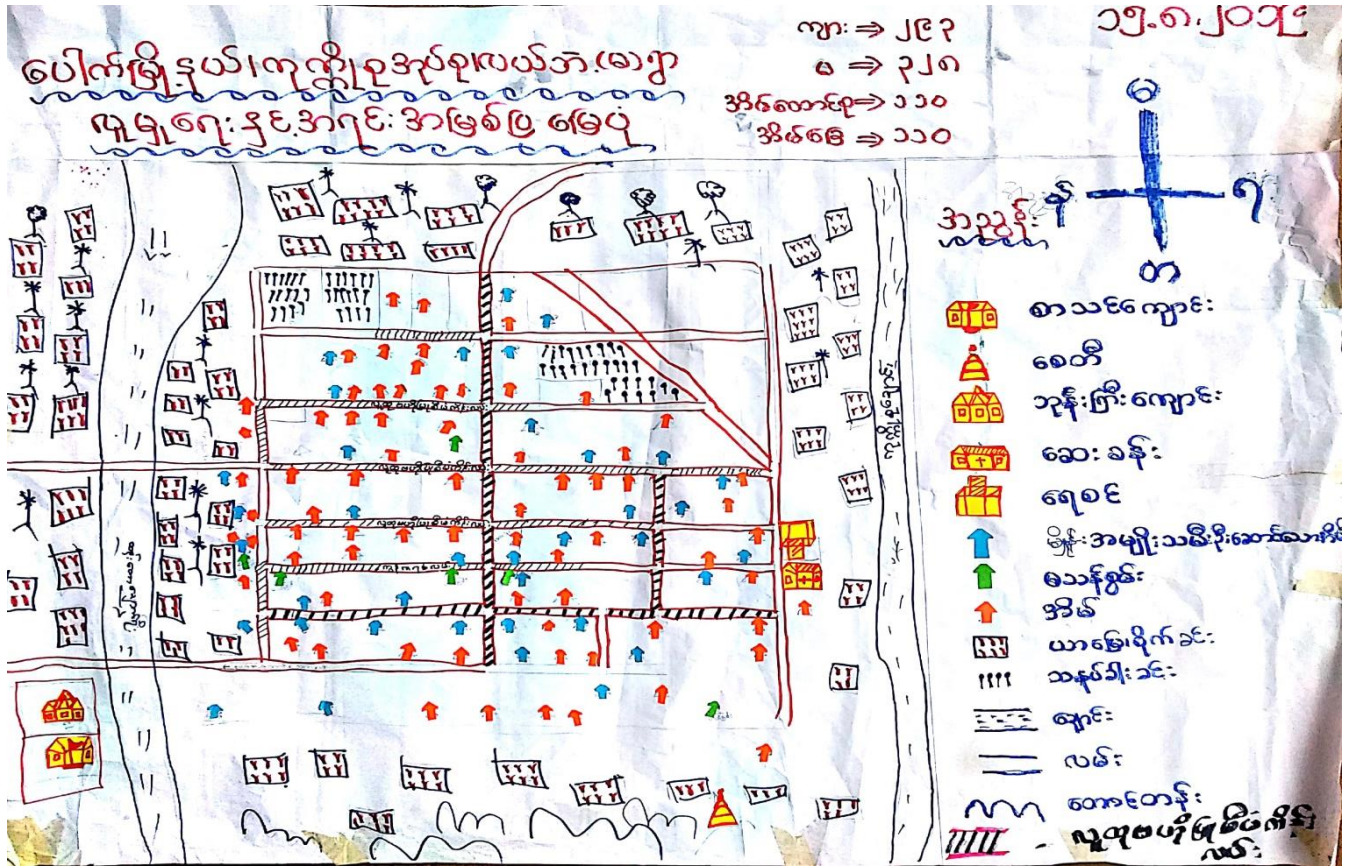 ပေါက်မြို့နယ်၊ကုက္ကိုစုအုပ်စု၊လယ်ဘို့(မ)ရွာ
လူမှုရေးနှင့်အရင်းအမြစ်ပြ မြေပုံ
ကျား ⇒ ၂၉၃
မ ⇒ ၃၂၈
အိမ်ထောင်စု ⇒ ၁၁၀
အိမ်ခြေ ⇒ ၁၁၀
မ
န
ရ
တ
အညွှန်း
စာသင်ကျောင်း
စေတီ
ဘုန်းကြီးကျောင်း
ဆေးခန်း
ရေစင်
အမျိုးသမီးဦးဆောင်သော
မသန်စွမ်း
အိမ်
ယာမြေစိုက်ခင်း
သနပ်ခါးခင်း
ချောင်း
လမ်း
တောင်တန်း
လူထုဗဟိုပြုစီမံကိန်း
လမ်း